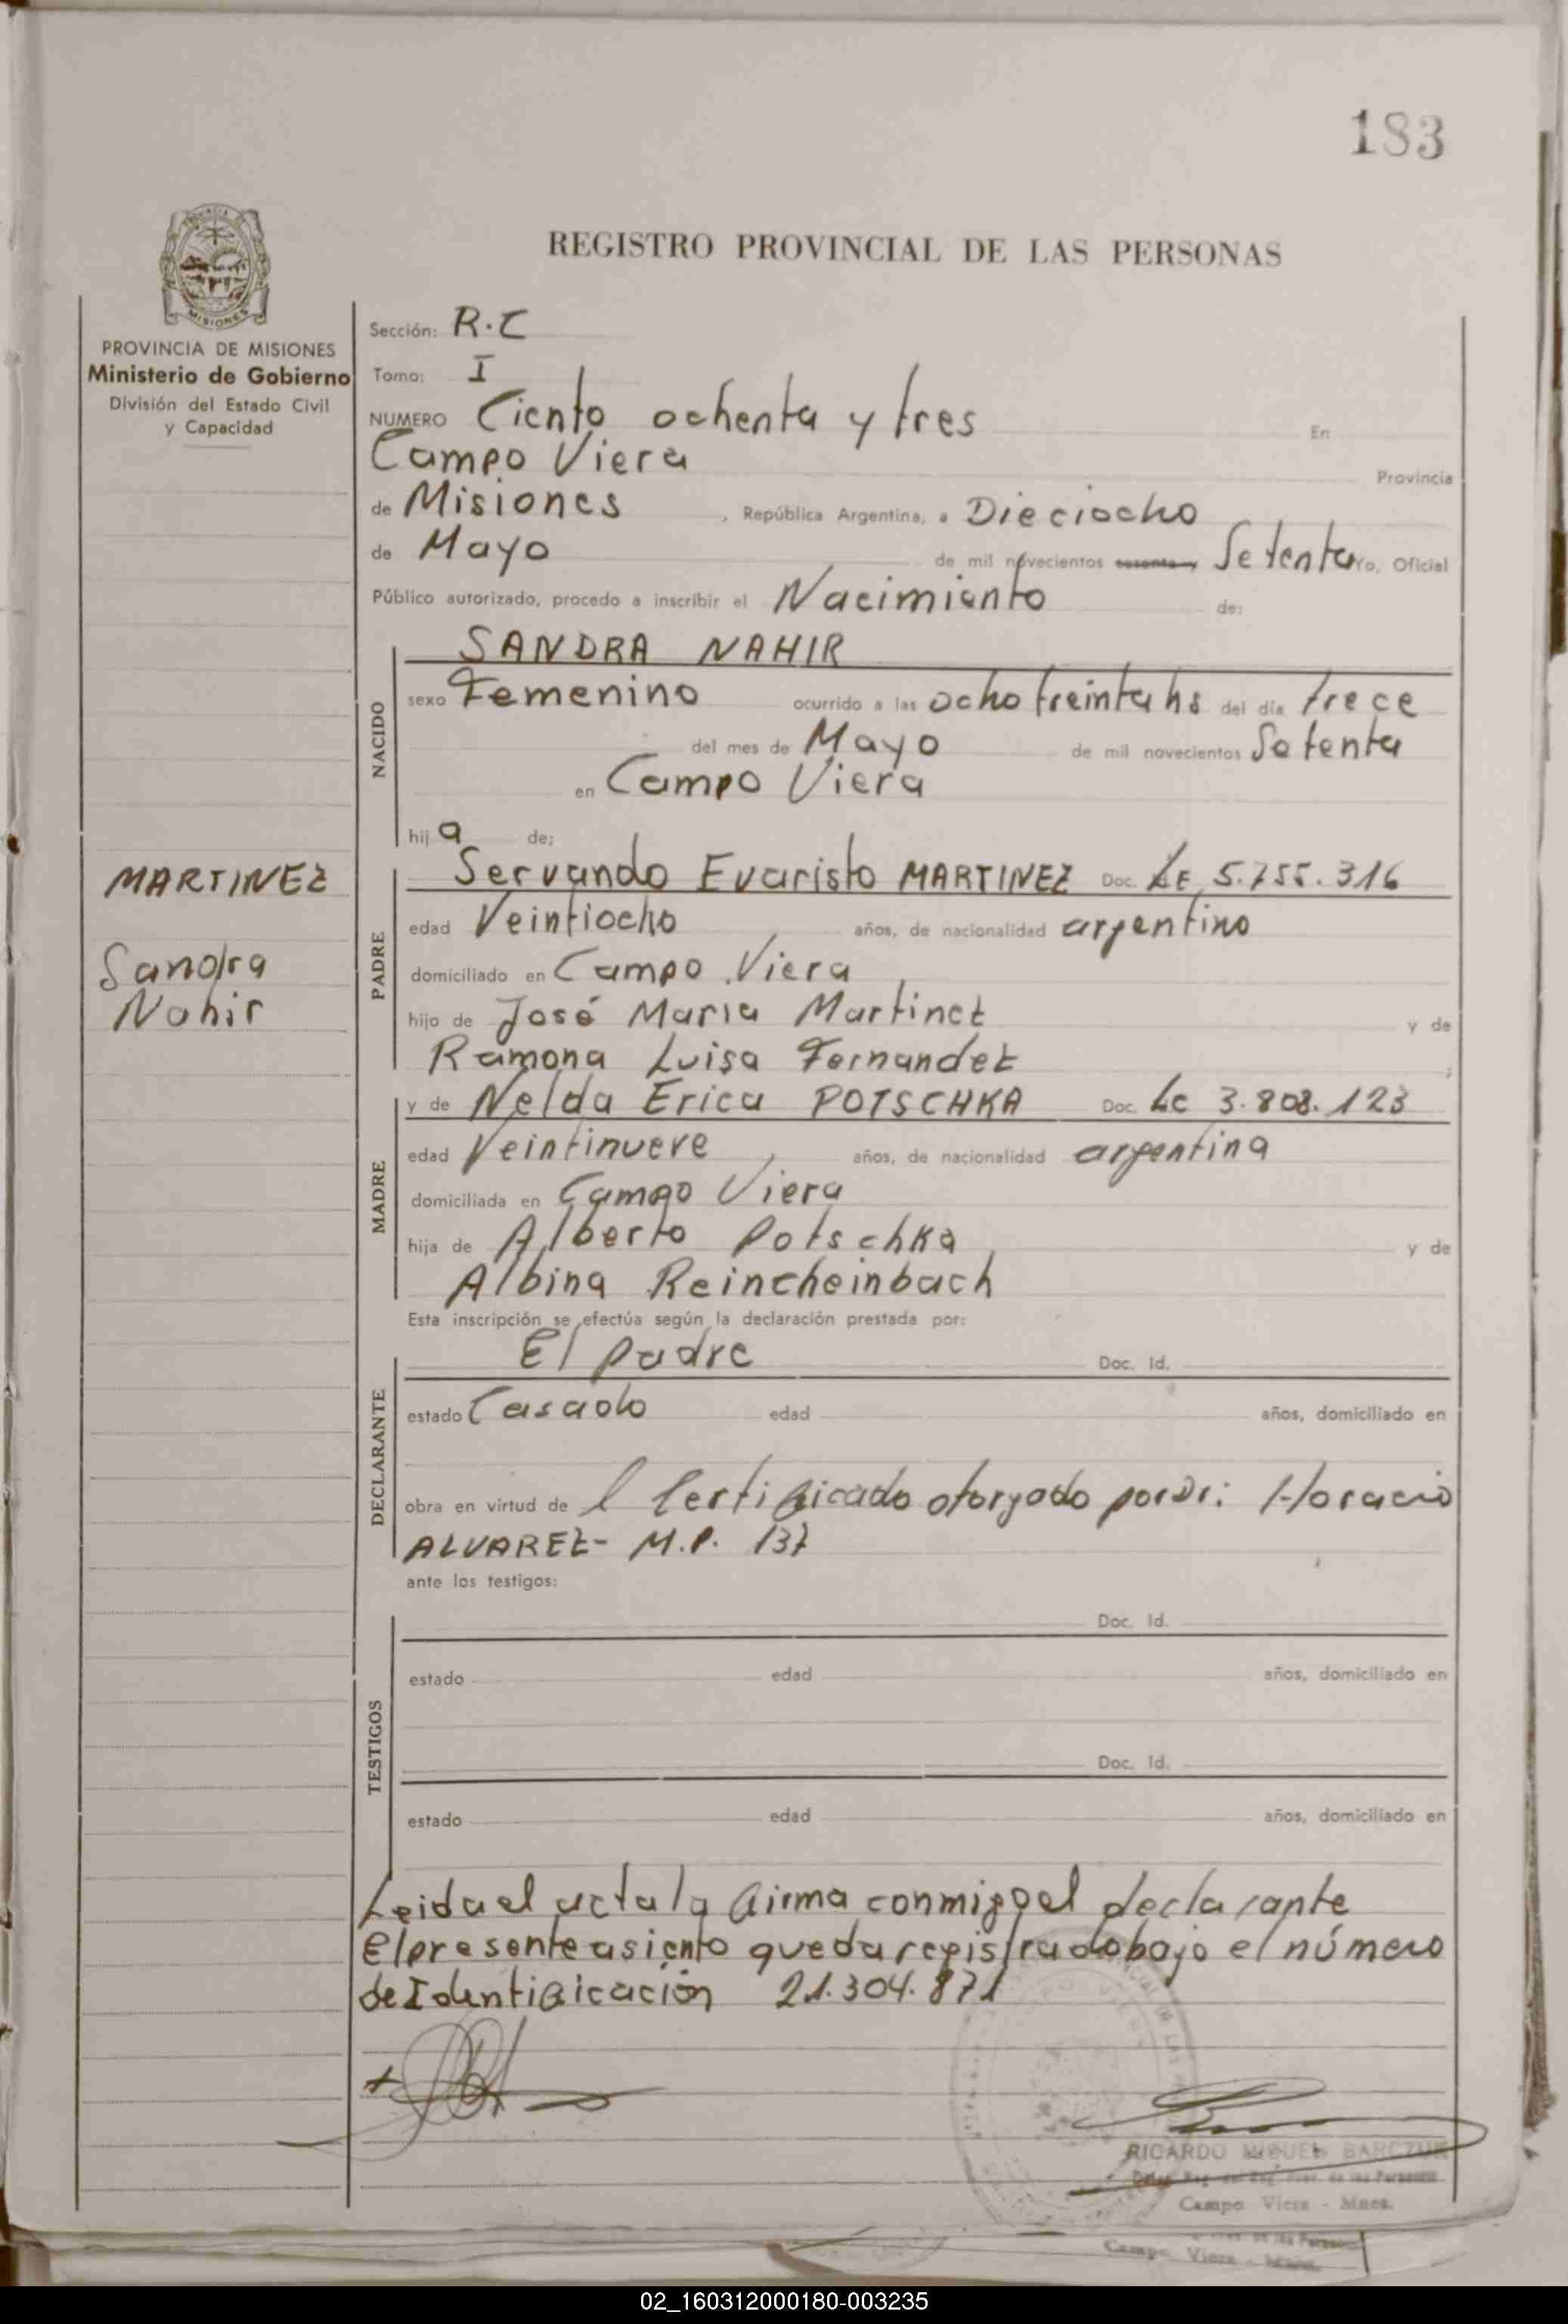 183
REGISTRO PROVINCIAL DE LAS PERSONAS
PROVINCIA DE MISIONES
Ministerio de Gobierno
División del Estado Civil
y Capacidad
MISIONES
Sección: R.C
Tomo: I
NUMERO Ciento ochenta y tres En
Campo Viera Provincia
de Misiones , República Argentina, a Dieciocho
de Mayo de mil novecientos sesenta y Setenta Yo, Oficial
Público autorizado, procedo a inscribir el Nacimiento de:
NACIDO
SANDRA NAHIR
sexo Femenino ocurrido a las ocho treinta hs del día trece
del mes de Mayo de mil novecientos Setenta
en Campo Viera
hij a de;
MARTINEZ
Sandra
Nahir
PADRE
Servando Evaristo MARTINEZ Doc. LE 5.755.316
edad Veintiocho años, de nacionalidad argentino
domiciliado en Campo Viera
hijo de José Maria Martinez y de
Ramona Luisa Fernandez ;
MADRE
y de Nelda Erica POTSCHKA Doc. LC 3.808.123
edad Veintinueve años, de nacionalidad argentina
domiciliada en Campo Viera
hija de Alberto Potschka y de
Albina Reincheinbach
Esta inscripción se efectúa según la declaración prestada por:
DECLARANTE
El padre Doc. Id.
estado Casado edad años, domiciliado en
obra en virtud de l Certificado otorgado por Dr: Horacio
ALVAREZ- M.P. 137
ante los testigos:
TESTIGOS
Doc. Id.
estado edad años, domiciliado en
Doc. Id.
estado edad años, domiciliado en
Leida el acta la firma conmigo el declarante
El presente asiento queda registrado bajo el número
de Identificación 21.304.871
RICARDO MIGUEL BARCZUK
Campo Viera - Mnes.
Campo Viera
02_160312000180-003235